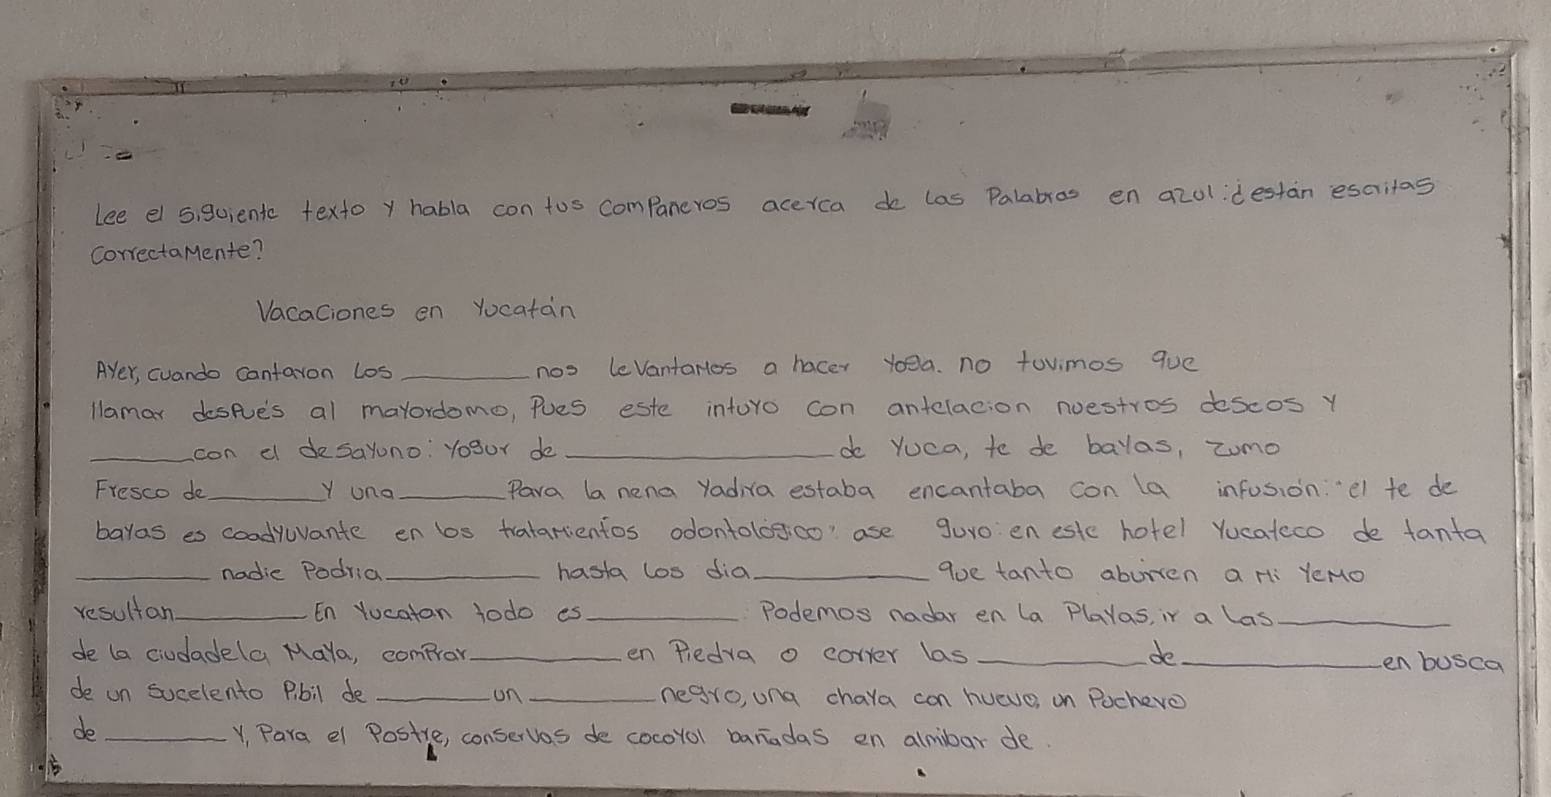 Lee el siguiente texto y habla con tus compañeros acerca de las Palabras en azul: ¿están escritas
correctamente?
Vacaciones en Yucatán
Ayer, cuando cantaron los ________ nos levantamos a hacer yoga. no tuvimos que
llamar despúes al mayordomo, Pues este intuyo con antelacion nuestros deseos y
______ con el desayuno: Yogur de ______________ de Yuca, te de bayas, zumo
Fresco de ______ y una ______ Para la nena Yadira estaba encantaba con la infusión: "el te de
bayas es coadyuvante en los tratamientos odontológico" ase guro: en este hotel Yucateco de tanta
_______ nadie Podria ________ hasta los dia _________ que tanto aburren a mi Yerno
resultan _______ En Yucatan todo es ________. Podemos nadar en la Playas, ir a las _________
de la ciudadela Maya, comprar ________ en Piedra o correr las _________ de __________ en busca
de un suculento Pibil de ______ un _______ negro, una chaya con huevo, un Pochero
de _______ Y, Para el Postre, conservas de cocoyol bañadas en almibar de.